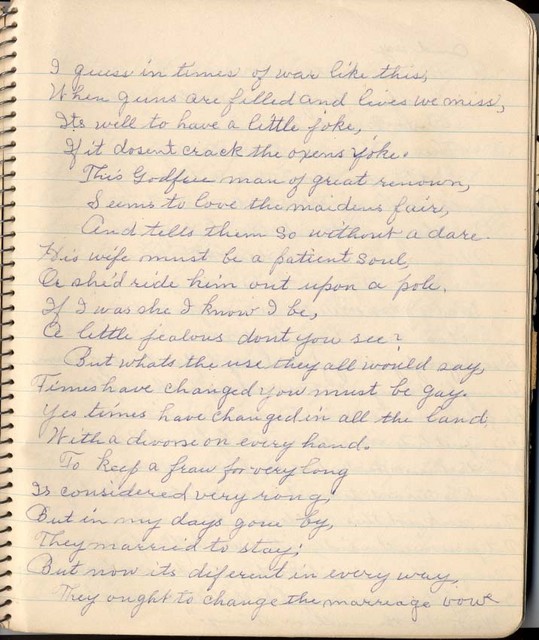 I guess in times of war like this,
When guns are filled and lives we miss,
Its well to have a little joke,
If it dosent crack the oxens yoke.
This Godfree man of great renown,
Seems to love the maidens fair,
And tells them so without a dare.
His wife must be a patient soul,
Or she'd ride him out upon a pole.
If I was she I know I be,
A little jealous dont you see?
But whats the use they all would say,
Times have changed you must be gay.
Yes times have changed in all the land,
With a divorse on every hand.
To keep a frau for very long
Is considered very rong,
But in my days gone by,
They married to stay;
But now its diferent in every way,
They ought to change the marriage vow